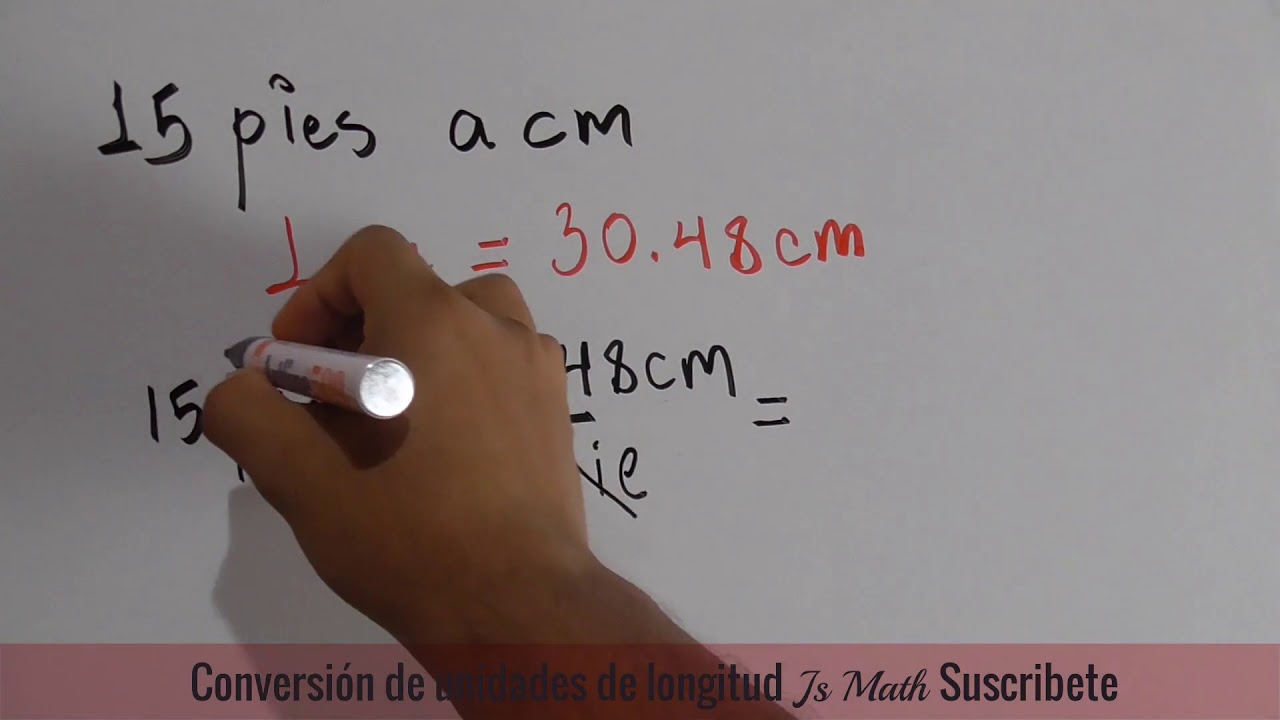 15 pies a cm
1 = 30.48cm
15 48cm =
ie
Conversión de unidades de longitud Js Math Suscribete